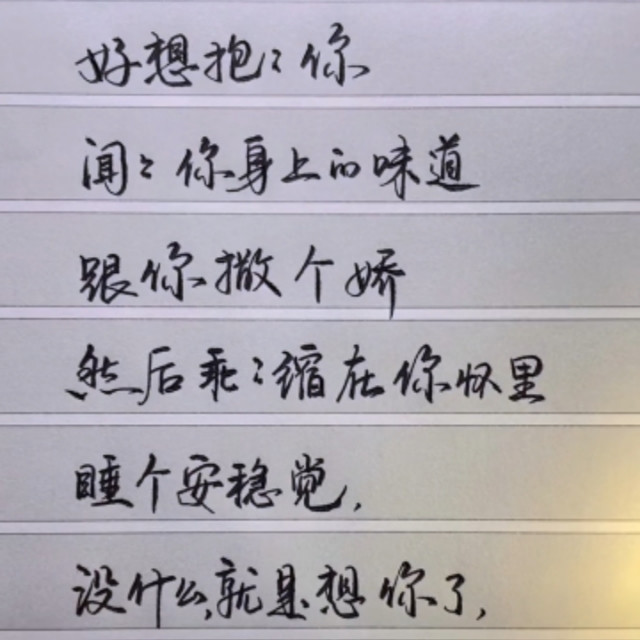 好想抱〻你
闻〻你身上的味道
跟你撒个娇
然后乖〻缩在你怀里
睡个安稳觉，
没什么，就是想你了，